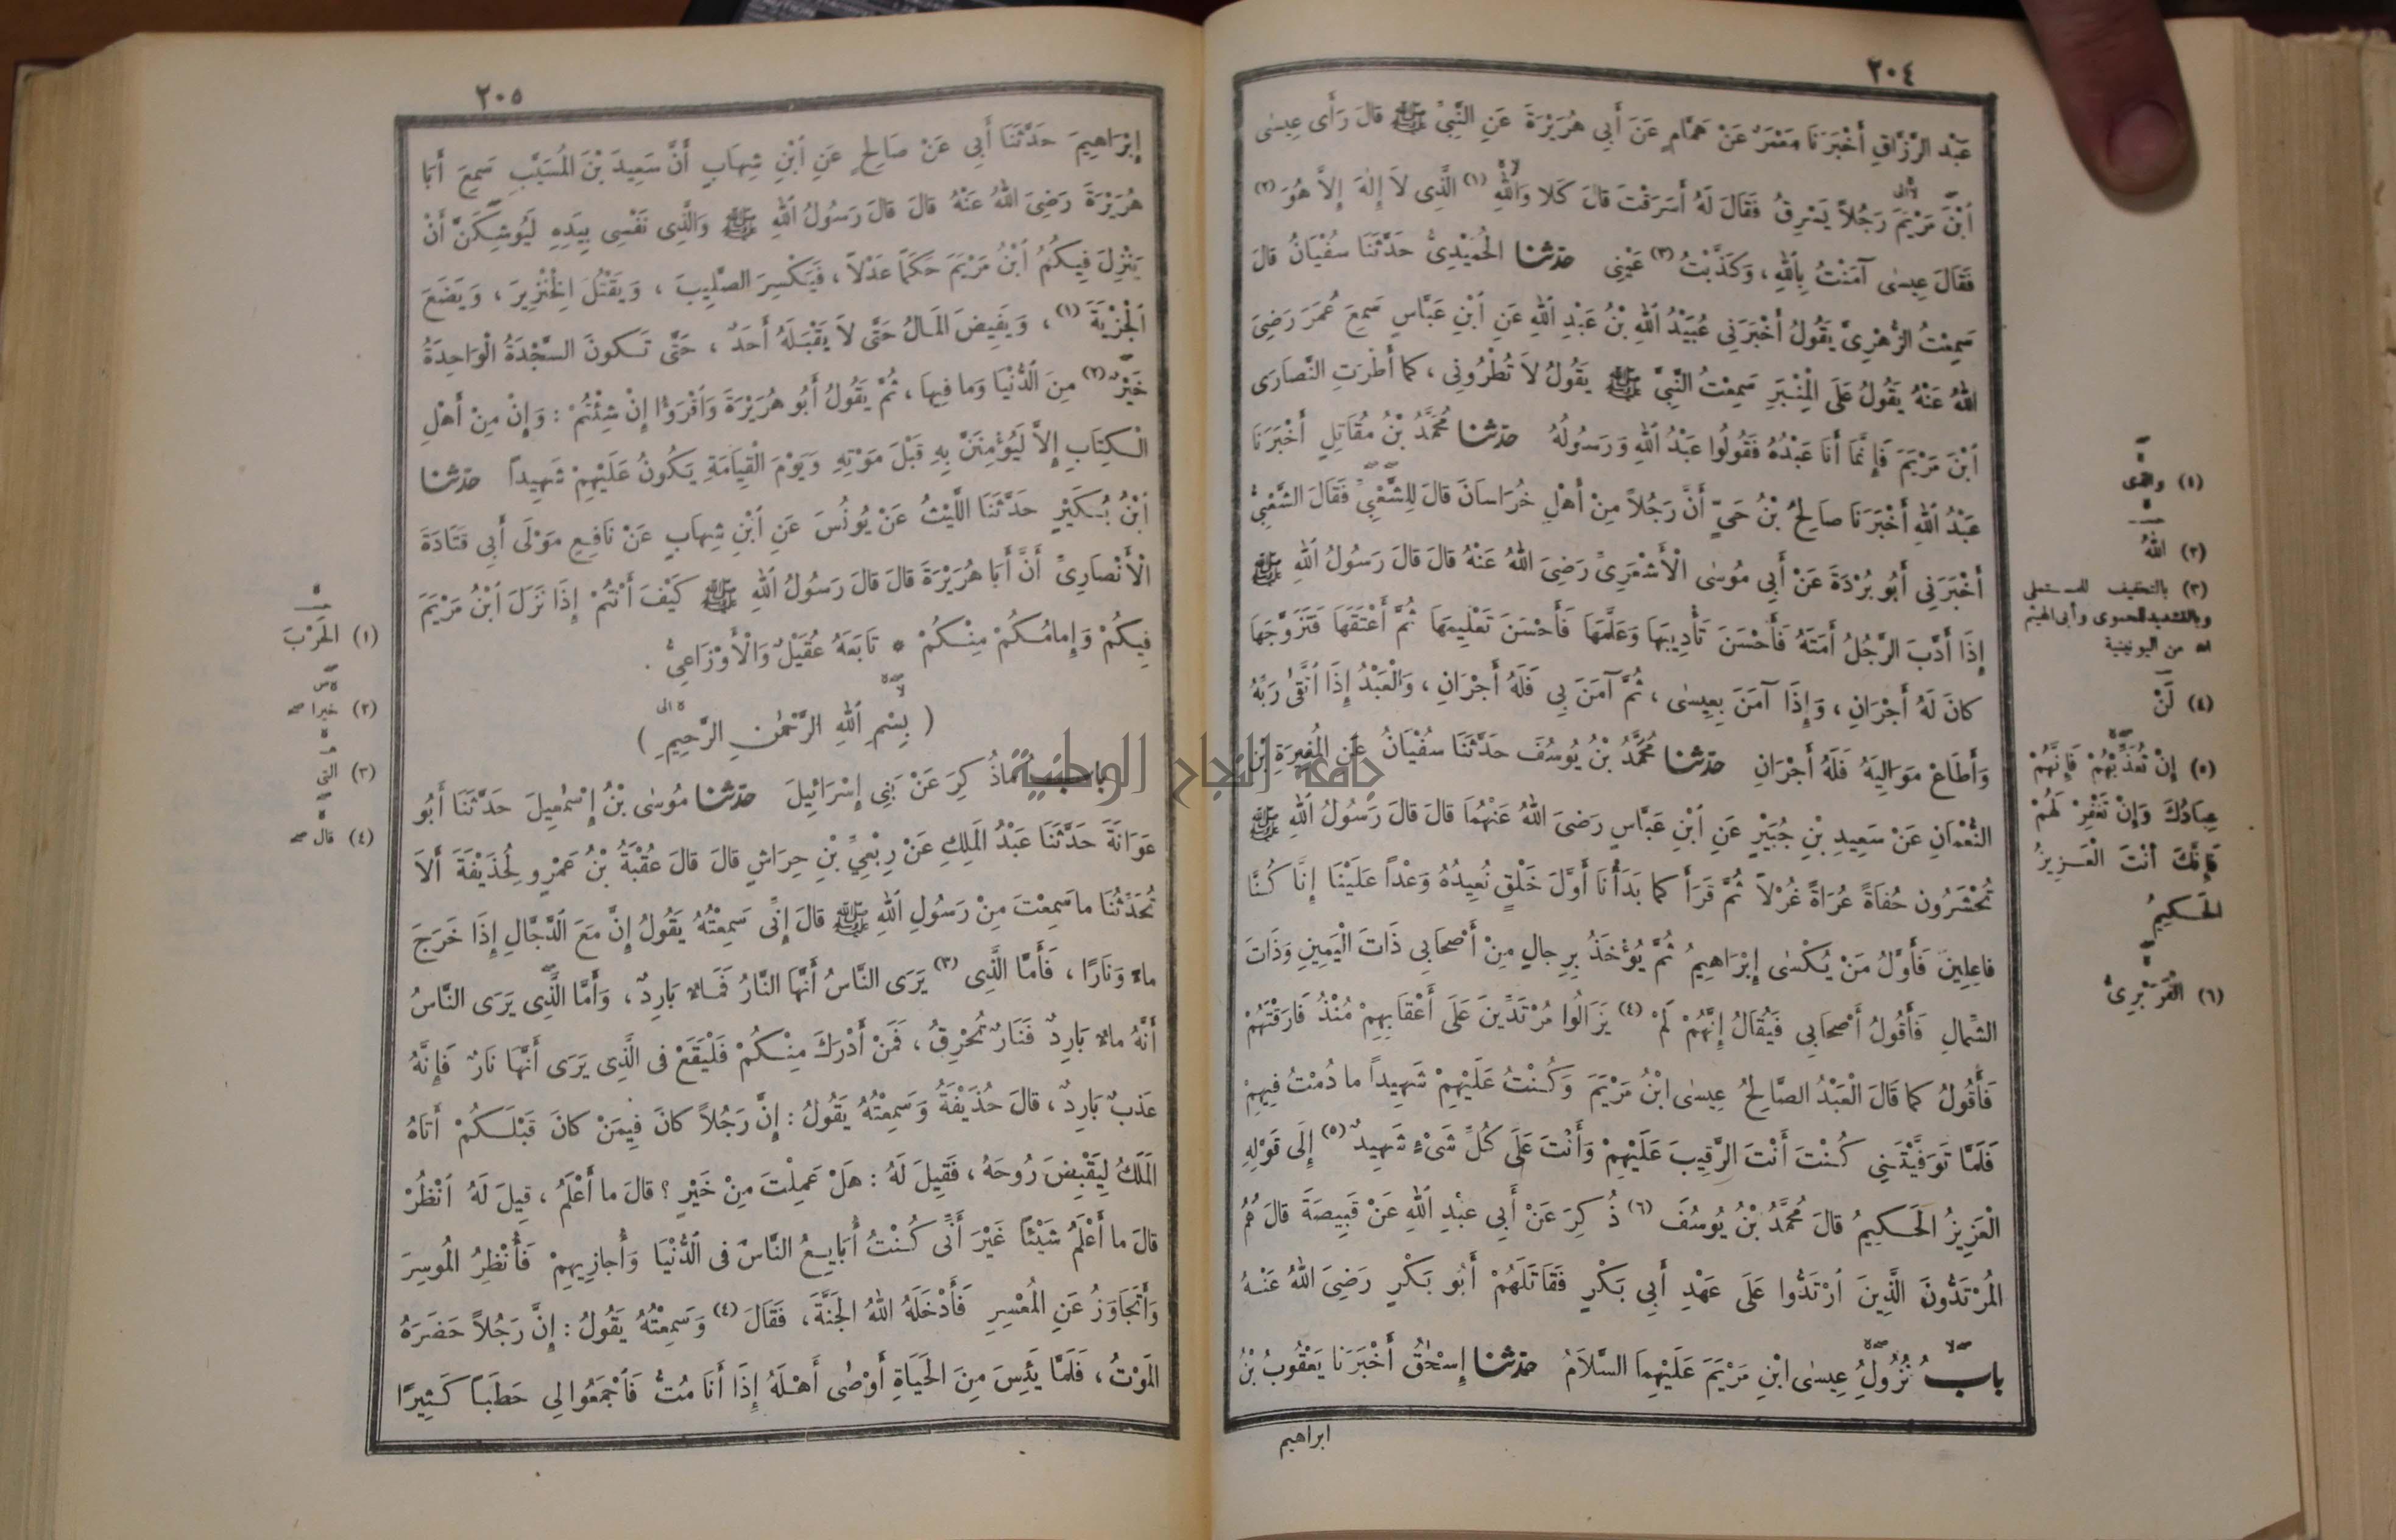 ٢٠٤
عَبْد الرَّزَّاقِ أَخْبَرَنَا مَعْمَرٌ عَنْ هَمَّامٍ عَنْ أَبِي هُرَيْرَةَ عَنِ النَّبِيِّ ﷺ قالَ رَأَى عِيسٰى
ٱبْنُ مَرْيَمَ رَجُلاً يَسْرِقُ فَقَالَ لَهُ أَسَرَقْتَ قالَ كَلا وَاللهِ (١) الَّذِى لاَ إِلٰهَ إِلاَّ هُوَ (٢)
فَقَالَ عِيسٰى آمَنْتُ بِاللهِ ، وَكَذَّبْتُ (٣) عَيْنِى حدّثنا الْحُمَيْدِىُّ حَدَّثَنَا سُفْيَانُ قالَ
سَمِعْتُ الزُّهْرِىَّ يَقُولُ أَخْبَرَنِى عُبَيْدُ اللهِ بْنُ عَبْدِ اللهِ عَنِ ٱبْنِ عَبَّاسٍ سَمِعَ عُمَرَ رَضِىَ
اللهُ عَنْهُ يَقُولُ عَلَى الْمِنْبَرِ سَمِعْتُ النَّبِىَّ ﷺ يَقُولُ لاَ تُطْرُونِى ، كما أَطْرَتِ النَّصَارَى
ٱبْنَ مَرْيَمَ فَإِنَّمَا أَنَا عَبْدُهُ فَقُولُوا عَبْدُ اللهِ وَرَسُولُهُ حدّثنا مُحَمَّدُ بْنُ مُقَاتِلٍ أَخْبَرَنَا
عَبْدُ اللهِ أَخْبَرَنَا صَالِحُ بْنُ حَىٍّ أَنَّ رَجُلاً مِنْ أَهْلِ خُرَاسَانَ قالَ لِلشَّعْبِىِّ فَقَالَ الشَّعْبِىُّ
أَخْبَرَنِى أَبُو بُرْدَةَ عَنْ أَبِى مُوسٰى الْأَشْعَرِىِّ رَضِىَ اللهُ عَنْهُ قالَ قالَ رَسُولُ اللهِ ﷺ
إِذَا أَدَّبَ الرَّجُلُ أَمَتَهُ فَأَحْسَنَ تَأْدِيبَهَا وَعَلَّمَهَا فَأَحْسَنَ تَعْلِيمَهَا ثُمَّ أَعْتَقَهَا فَتَزَوَّجَهَا
كانَ لَهُ أَجْرَانِ ، وَإِذَا آمَنَ بِعِيسٰى ، ثُمَّ آمَنَ بِى فَلَهُ أَجْرَانِ ، وَالْعَبْدُ إِذَا ٱتَّقٰى رَبَّهُ
وَأَطَاعَ مَوَالِيَهُ فَلَهُ أَجْرَانِ حدّثنا مُحَمَّدُ بْنُ يُوسُفَ حَدَّثَنَا سُفْيَانُ عَنِ الْمُغِيرَةِ بْنِ
النُّعْمَانِ عَنْ سَعِيدِ بْنِ جُبَيْرٍ عَنِ ٱبْنِ عَبَّاسٍ رَضِىَ اللهُ عَنْهُمَا قالَ قالَ رَسُولُ اللهِ ﷺ
تُحْشَرُون حُفَاةً عُرَاةً غُرْلاً ثُمَّ قَرَأَ كما بَدَأْنَا أَوَّلَ خَلْقٍ نُعِيدُهُ وَعْداً عَلَيْنَا إِنَّا كُنَّا
فاعِلِينَ فَأَوَّلُ مَنْ يُكْسٰى إِبْرَاهِيمُ ثُمَّ يُؤْخَذُ بِرِجالٍ مِنْ أَصْحَابِى ذَاتَ الْيَمِينِ وَذَاتَ
الشِّمالِ فَأَقُولُ أَصْحابِى فَيُقَالُ إِنَّهُمْ لَمْ (٤) يَزَالُوا مُرْتَدِّينَ عَلَى أَعْقَابِهِمْ مُنْذُ فَارَقْتَهُمْ
فَأَقُولُ كما قَالَ الْعَبْدُ الصَّالِحُ عِيسٰى ابْنُ مَرْيَمَ وَكُنْتُ عَلَيْهِمْ شَهِيداً ما دُمْتُ فِيهِمْ
فَلَمَّا تَوَفَّيْتَنِى كُنْتَ أَنْتَ الرَّقِيبَ عَلَيْهِمْ وَأَنْتَ عَلَى كُلِّ شَىْءٍ شَهِيدٌ (٥) إِلَى قَوْلِهِ
الْعَزِيزُ الْحَكِيمُ قالَ مُحَمَّدُ بْنُ يُوسُفَ (٦) ذُكِرَ عَنْ أَبِى عَبْدِ اللهِ عَنْ قَبِيصَةَ قالَ هُمُ
الْمُرْتَدُّونَ الَّذِينَ ٱرْتَدُّوا عَلَى عَهْدِ أَبِى بَكْرٍ فَقَاتَلَهُمْ أَبُو بَكْرٍ رَضِىَ اللهُ عَنْهُ
بابُ نُزُولُ عِيسٰى ابْنِ مَرْيَمَ عَلَيْهِمَا السَّلاَمُ حدّثنا إِسْحٰقُ أَخْبَرَنَا يَعْقُوبُ بْنُ
ابراهيم
(١) والذى
(٢) اللهُ
(٣) بالتخفيف للمستملى
وبالتشديد للحموى وأبى الهيثم
اه من اليونينية
(٤) لَنْ
(٥) إِنْ تُعَذِّبْهُمْ فَإِنَّهُمْ
عِبَادُكَ وَإِنْ تَغْفِرْ لَهُمْ
فَإِنَّكَ أَنْتَ الْعَزِيزُ
الْحَكِيمُ
(٦) الْفَرَبْرِىُّ
٢٠٥
إِبْرَاهِيمَ حَدَّثَنَا أَبِى عَنْ صَالِحٍ عَنِ ٱبْنِ شِهَابٍ أَنَّ سَعِيدَ بْنَ الْمُسَيَّبِ سَمِعَ أَبَا
هُرَيْرَةَ رَضِىَ اللهُ عَنْهُ قالَ قالَ رَسُولُ اللهِ ﷺ وَالَّذِى نَفْسِى بِيَدِهِ لَيُوشِكَنَّ أَنْ
يَنْزِلَ فِيكُمُ ٱبْنُ مَرْيَمَ حَكَمًا عَدْلاً ، فَيَكْسِرَ الصَّلِيبَ ، وَيَقْتُلَ الْخِنْزِيرَ ، وَيَضَعَ
الْجِزْيَةَ (١) ، وَيَفِيضَ الْمَالُ حَتَّى لاَ يَقْبَلَهُ أَحَدٌ ، حَتَّى تَكونَ السَّجْدَةُ الْوَاحِدَةُ
خَيْرٌ (٢) مِنَ الدُّنْيَا وَما فِيهَا ، ثُمَّ يَقُولُ أَبُو هُرَيْرَةَ وَاقْرَؤُا إِنْ شِئْتُمْ : وَإِنْ مِنْ أَهْلِ
الْكِتَابِ إِلاَّ لَيُؤْمِنَنَّ بِهِ قَبْلَ مَوْتِهِ وَيَوْمَ الْقِيَامَةِ يَكُونُ عَلَيْهِمْ شَهِيداً حدّثنا
ٱبْنُ بُكَيْرٍ حَدَّثَنَا اللَّيْثُ عَنْ يُونُسَ عَنِ ٱبْنِ شِهَابٍ عَنْ نَافِعٍ مَوْلَى أَبِى قَتَادَةَ
الْأَنْصَارِىِّ أَنَّ أَبَا هُرَيْرَةَ قالَ قالَ رَسُولُ اللهِ ﷺ كَيْفَ أَنْتُمْ إِذَا نَزَلَ ٱبْنُ مَرْيَمَ
فِيكُمْ وَإِمامُكُمْ مِنْكُمْ * تَابَعَهُ عُقَيْلٌ وَالْأَوْزَاعِىُّ .
( بِسْمِ اللهِ الرَّحْمٰنِ الرَّحِيمِ )
باب ماذُكِرَ عَنْ بَنِى إِسْرَائِيلَ حدّثنا مُوسٰى بْنُ إِسْمٰعِيلَ حَدَّثَنَا أَبُو
عَوَانَةَ حَدَّثَنَا عَبْدُ الْمَلِكِ عَنْ رِبْعِىِّ بْنِ حِرَاشٍ قالَ قالَ عُقْبَةُ بْنُ عَمْرٍو لِحُذَيْفَةَ أَلاَ
تُحَدِّثُنَا ما سَمِعْتَ مِنْ رَسُولِ اللهِ ﷺ قالَ إِنِّى سَمِعْتُهُ يَقُولُ إِنَّ مَعَ الدَّجَّالِ إِذَا خَرَجَ
ماءً وَنَارًا ، فَأَمَّا الَّذِى (٣) يَرَى النَّاسُ أَنَّهَا النَّارُ فَمَاءٌ بَارِدٌ ، وَأَمَّا الَّذِى يَرَى النَّاسُ
أَنَّهُ ماءٌ بَارِدٌ فَنَارٌ تُحْرِقُ ، فَمَنْ أَدْرَكَ مِنْكُمْ فَلْيَقَعْ فى الَّذِى يَرَى أَنَّهَا نَارٌ فَإِنَّهُ
عَذبٌ بَارِدٌ ، قالَ حُذَيْفَةُ وَسَمِعْتُهُ يَقُولُ : إِنَّ رَجُلاً كانَ فِيمَنْ كانَ قَبْلَكُمْ أَتَاهُ
الْمَلَكُ لِيَقْبِضَ رُوحَهُ ، فَقِيلَ لَهُ : هَلْ عَمِلْتَ مِنْ خَيْرٍ ؟ قالَ ما أَعْلَمُ ، قِيلَ لَهُ ٱنْظُرْ
قالَ ما أَعْلَمُ شَيْئًا غَيْرَ أَنِّى كُنْتُ أُبَايِعُ النَّاسَ فى الدُّنْيَا وَأُجازِيهِمْ فَأُنْظِرُ الْمُوسِرَ
وَأَتَجَاوَزُ عَنِ الْمُعْسِرِ فَأَدْخَلَهُ اللهُ الْجَنَّةَ ، فَقَالَ (٤) وَسَمِعْتُهُ يَقُولُ : إِنَّ رَجُلاً حَضَرَهُ
الْمَوْتُ ، فَلَمَّا يَئِسَ مِنَ الْحَيَاةِ أَوْصٰى أَهْلَهُ إِذَا أَنَا مُتُّ فَاجْمَعُوا لِى حَطَباً كَثِيرًا
(١) الْحَرْبَ
(٢) خيرا صح
(٣) التى
(٤) قال صح
جامعة النجاح الوطنية